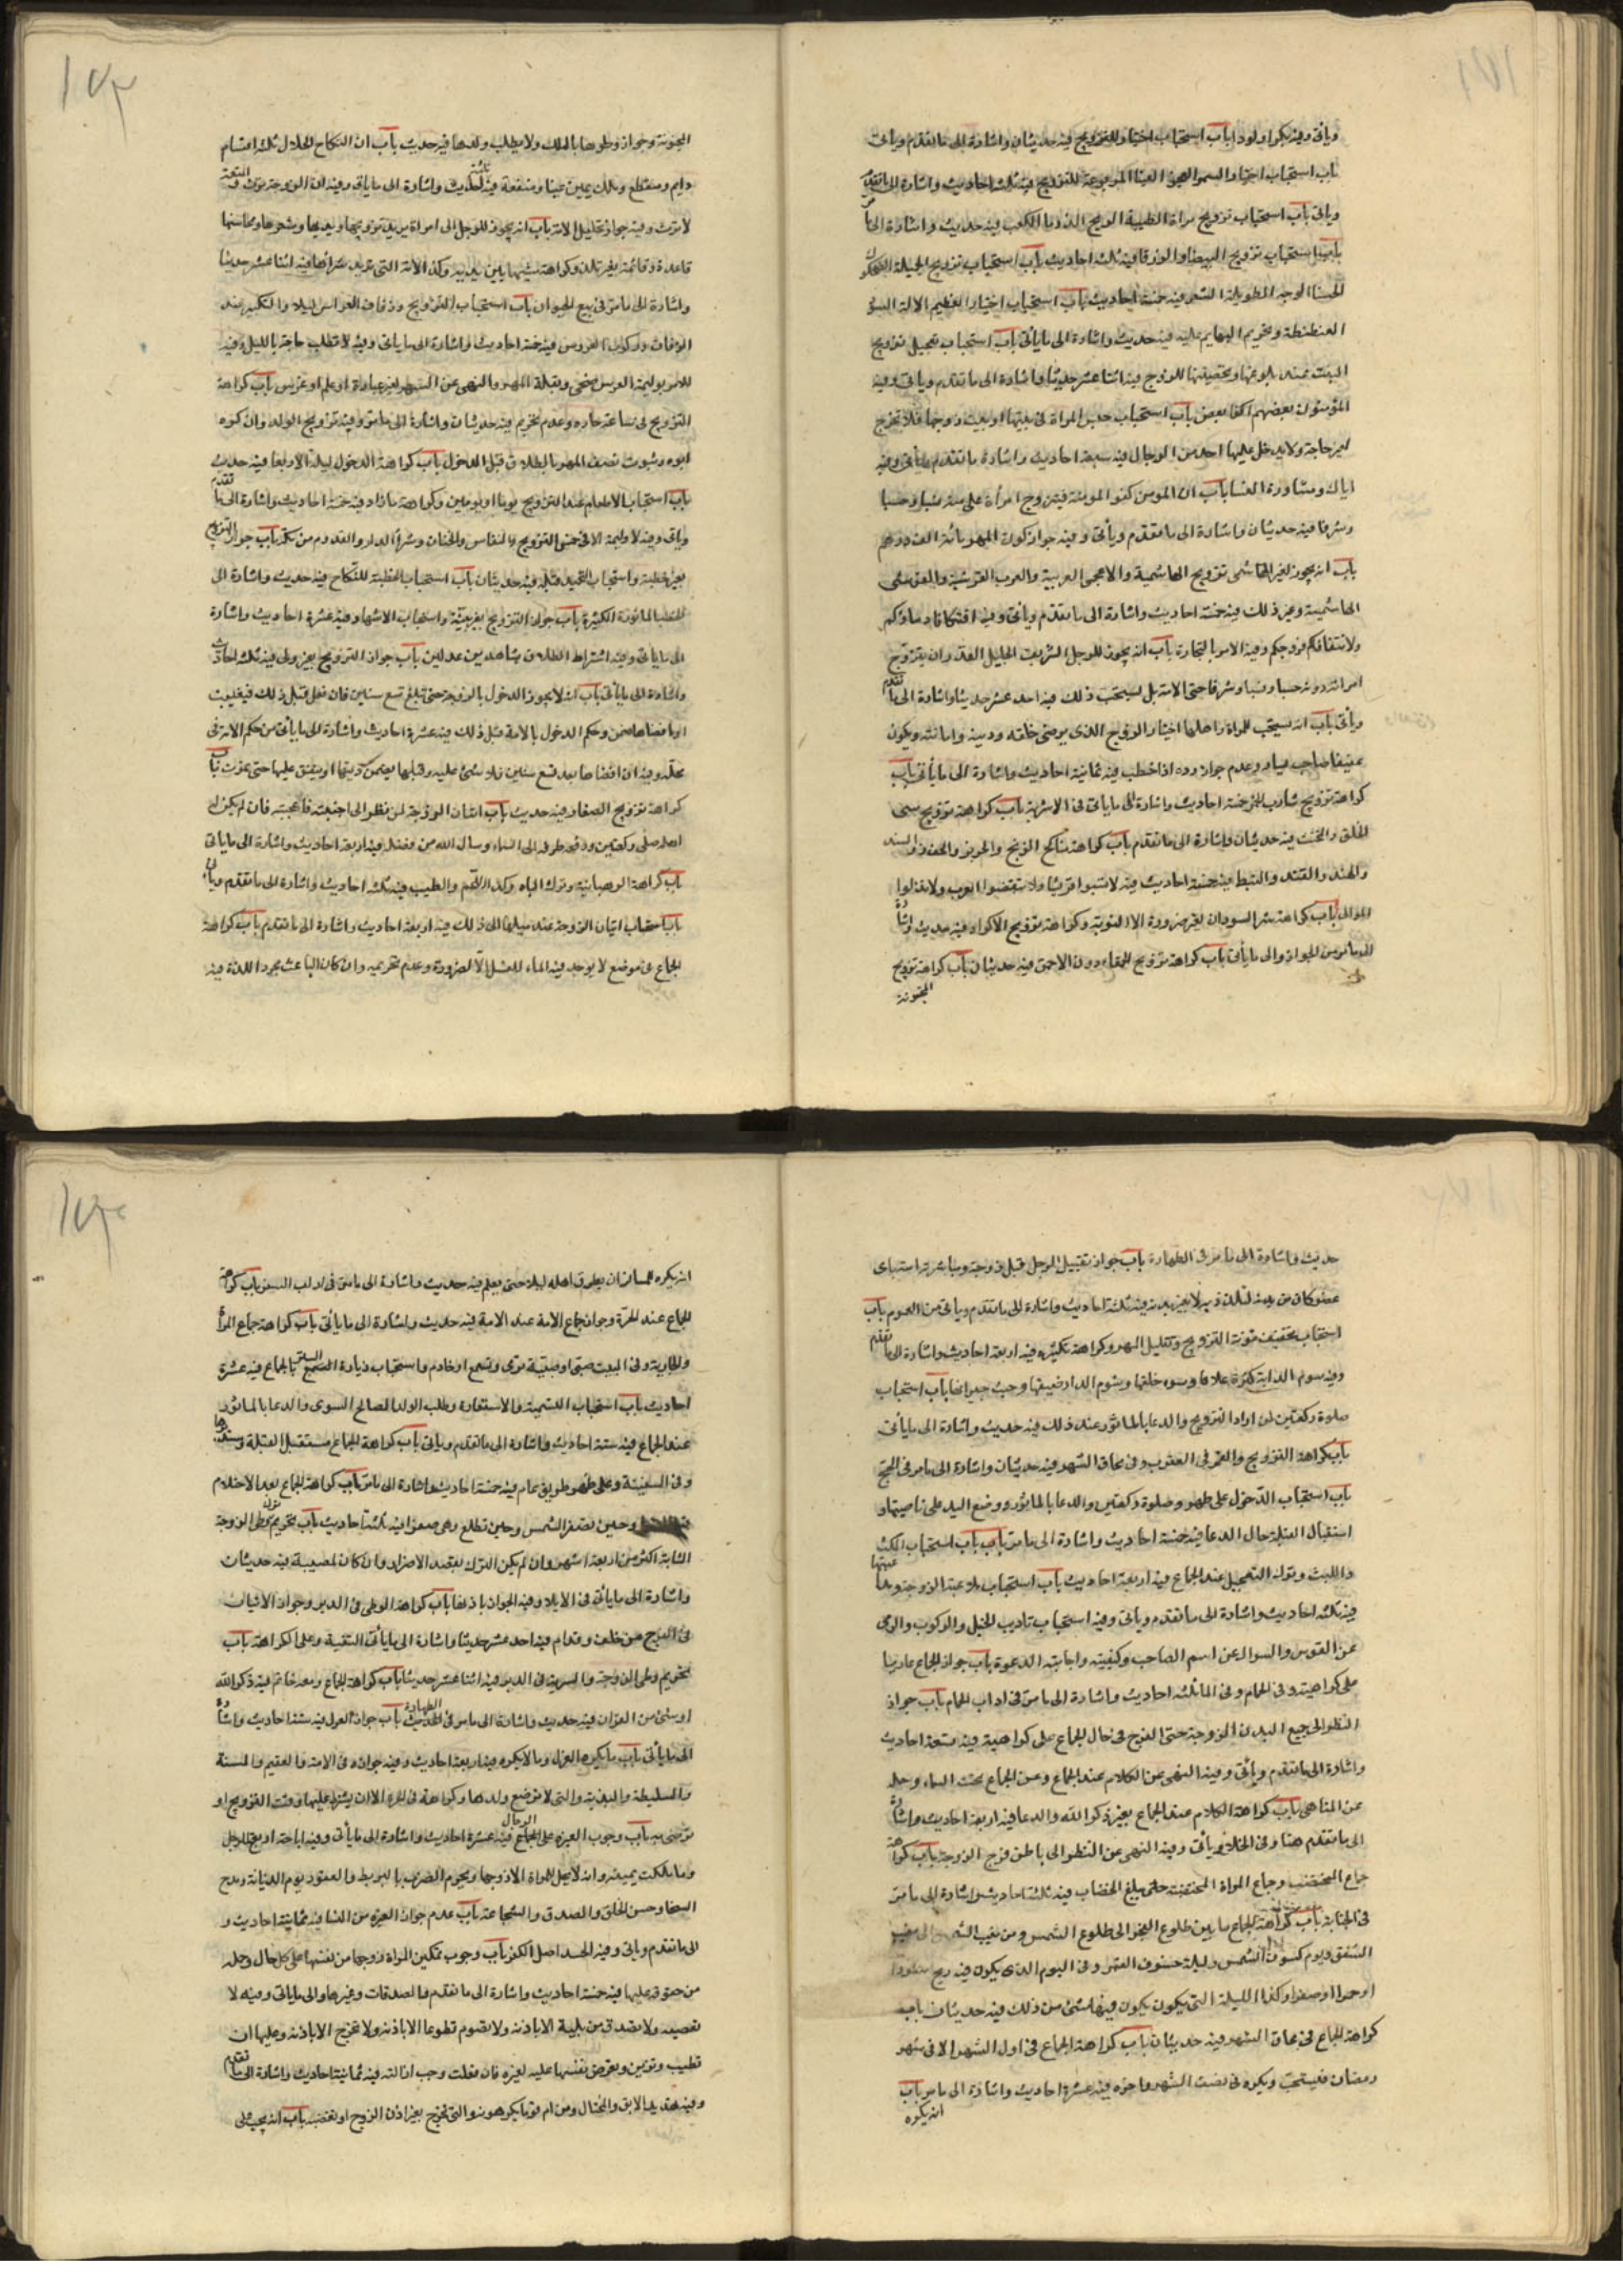 ويأتى وفيه بكرا ولودا باب استحباب اختيار للتزويج فيه حديثان واشارة الى ما تقدم ويأتى
باب استحباب اختيار السمراء العجزاء العيناء المربوعة للتزويج فيه ثلثة احاديث واشارة الى ما تقدم
ويأتى باب استحباب تزويج المراة الطيبة الريح الدرماء الكعب فيه حديث واشارة الى ما مر
باب استحباب تزويج البيضاء والزرقا فيه ثلثة احاديث باب استحباب تزويج الجميلة الضحوك
الحسنا الوجه الطويلة الشعر فيه خمسة احاديث باب استحباب اختيار العظيم الالة السوء
العنطنطة وتحريم البهايم عليه فيه حديث واشارة الى ما يأتى باب استحباب تعجيل تزويج
البنت عند بلوغها وتحصينها للزوج فيه اثنا عشر حديثا واشارة الى ما تقدم ويأتى وفيه
المؤمنون بعضهم اكفا بعض باب استحباب حبس المراة فى بيتها او بيت زوجها فلا تخرج
لغير حاجة ولا يدخل عليها احد من الرجال فيه سبعة احاديث واشارة ما تقدم ويأتى وفيه
اياك ومشاورة النسا باب ان المومن كفو المومنة فيتزوج امرأة على منه نسبا وحسبا
وشرفا فيه حديثان واشارة الى ما تقدم ويأتى وفيه جواز كون المهر مائة الف درهم
باب انه يجوز لغير الهاشمى تزويج الهاشمية والاعجمى العربية والعرب القرشية والقرشى
الهاشمية وغير ذلك فيه خمسة احاديث واشارة الى ما تقدم ويأتى وفيه اتتكافا دماؤكم
ولا تتكافا فروجكم وفيه الامر بالتجارة باب انه يجوز للرجل الشريف الجليل القدر ان يتزوج
امراة دونه حسبا ونسبا وشرفا حتى الامة بل يستحب ذلك فيه احد عشر حديثا واشارة الى ما تقدم
ويأتى باب انه يستحب للمراة واهلها اختيار الزوج الذى يرضى خلقه ودينه وامانته ويكون
عفيفا صاحب يسار وعدم جواز رده اذا خطب فيه ثمانية احاديث واشارة الى ما يأتى باب
كراهة تزويج شارب الخمر خمسة احاديث واشارة الى ما يأتى فى الاشربة باب كراهة تزويج سيى
الخلق والمخنث فيه حديثان واشارة الى ما تقدم باب كراهة مناكح الزنج والخزر والخوز والسند
والهند والقند والنبط فيه خمسة احاديث فيه لا تسبوا قريشا ولا تبغضوا العرب ولا تذلوا
الموالى باب كراهة شرا السودان لغير ضرورة الا النوبة وكراهة تزويج الاكراد فيه حديث واشارة
الى ما مر من الجواز والى ما يأتى باب كراهة تزويج الحمقاء دون الاحمق فيه حديثان باب كراهة تزويج
المجنونة
المجنونة وجواز وطوها بالملك ولا يطلب ولدها فيه حديث باب ان النكاح الحلال ثلثة اقسام
دايم ومنقطع وملك يمين عينا ومنفعة فيه ثلثة احاديث واشارة الى ما ياتى وفيه ان الزوجة ترث والمتعة
لا ترث وفيه جواز تحليل الامة باب انه يجوز للرجل الى امراة يريد تزويجها ويديها وشعرها ومحاسنها
قاعدة وقائمة بغير تلذذ وكراهة مشيها بين يديه وكذا الامة التى يريد شرائها فيه اثنا عشر حديثا
واشارة الى ما مر فى بيع الحيوان باب استحباب التزويج وزفاف العرائس ليلا والتكبير عند
الزفاف وركوب العروس فيه خمسة احاديث واشارة الى ما ياتى وفيه لا تطلب حاجة بالليل وفيه
للامر بوليمة العرس ضحى وبقلة المهر والنهى عن السهر لغير عبادة او علم او عرس باب كراهة
التزويج فى ساعة حارة وعدم تحريم فيه حديثان واشارة الى ما مر وفيه تزويج الولد وان كره
ابوه وثبوت نصف المهر بالطلاق قبل الدخول باب كراهة الدخول ليلة الاربعا فيه حديث
باب استحباب الاطعام عند التزويج يوما او يومين وكراهة ما زاد فيه خمسة احاديث واشارة الى ما تقدم
وياتى وفيه لا وليمة الا فى خمس التزويج والنفاس والختان وشرأ الدار والقدوم من مكة باب جواز التزويج
بغير خطبة واستحباب التحميد قبله فيه حديثان باب استحباب الخطبة للنكاح فيه حديث واشارة الى
الخطب الماثورة الكثيرة باب جواز التزويج بغير بينة واستحباب الاشهاد فيه عشرة احاديث واشارة
الى ما ياتى وفيه اشتراط الطلاق بشاهدين عدلين باب جواز التزويج بغير ولى فيه ثلثة احاديث
واشارة الى ما يأتى باب انه لا يجوز الدخول بالزوجة حتى تبلغ تسع سنين فان فعل قبل ذلك فعيبت
او افضاها ضمن وحكم الدخول بالامة قبل ذلك فيه عشرة احاديث واشارة الى ما يأتى من حكم الامة فى
محله وفيه ان افضاها بعد تسع سنين فلا شئ عليه وقبلها يضمن ديتها او ينفق عليها حتى تموت باب
كراهة تزويج الصغار فيه حديث باب اتيان الزوجة لمن نظر الى اجنبية فاعجبته فان لم يكن له
اهل صلى ركعتين ورفع طرفه الى السماء وسال الله من فضله فيه اربعة احاديث واشارة الى ما ياتى
باب كراهة الرهبانية وترك الباه وكذا اللحم والطيب فيه ثلثة احاديث واشارة الى ما تقدم ويأتى
باب استحباب اتيان الزوجة عند ميلها الى ذلك فيه اربعة احاديث واشارة الى ما تقدم باب كراهة
الجماع فى موضع لا يوجد فيه الماء للغسل الا لضرورة وعدم تحريمه وان كان الباعث مجرد اللذة فيه
حديث واشارة الى ما مر فى الطهارة باب جواز تقبيل الرجل قبل زوجته ومباشرته استها باى
عضو كان من بدنه لتلذذ به لا بغير بدنه فيه ثلثة احاديث واشارة الى ما تقدم وياتى من العموم باب
استحباب تخفيف مؤنة التزويج وتقليل المهر وكراهة تكثيره فيه اربعة احاديث واشارة الى ما تقدم
وفيه شوم الدابة كثرة علاها وسوء خلقها وشوم الدار ضيقها وخبث جيرانها باب استحباب
صلوة ركعتين لمن اراد التزويج والدعا بالماثور عند ذلك فيه حديث واشارة الى ما يأتى
باب كراهة التزويج والقمر فى العقرب وفى محاق الشهر فيه حديثان واشارة الى ما مر فى الحج
باب استحباب الدخول على طهر وصلوة ركعتين والدعا بالماثور ووضع اليد على ناصيتها و
استقبال القبلة حال الدعا فيه خمسة احاديث واشارة الى ما مر باب استحباب المكث
واللبث وترك التعجيل عند الجماع فيه اربعة احاديث باب استحباب ملاعبة الزوجة وملاعبتها
فيه ثلثة احاديث واشارة الى ما تقدم وياتى وفيه استحباب تاديب الخيل والركوب والرمى
عن القوس والسوال عن اسم الصاحب وكنيته واجابته الدعوة باب جواز الجماع عاريا
على كراهية وفى الحمام وفى الما ثلثة احاديث واشارة الى ما مر فى اداب الحمام باب جواز
النظر الى جميع البدن الزوجة حتى الفرج فى حال الجماع على كراهية فيه سبعة احاديث
واشارة الى ما تقدم ويأتى وفيه النهى عن الكلام عند الجماع وعن الجماع تحت السماء وجملة
من المناهى باب كراهة الكلام عند الجماع بغير ذكر الله والدعا فيه اربعة احاديث واشارة
الى ما تقدم هنا وفى الخلا ويأتى وفيه النهى عن النظر الى باطن فرج الزوجة باب كراهة
جماع المختضب وجماع المراة المختضبة حتى يبلغ الخضاب فيه ثلثة احاديث واشارة الى ما مر
فى الجنابة باب كراهة الجماع ما بين طلوع الفجر الى طلوع الشمس ومن مغيب الشمس الى مغيب
الشفق ويوم كسوف الشمس وليلة خسوف القمر وفى اليوم الذى يكون فيه ريح سودا
او حمرا او صفرا وكذا الليلة التى يكون يكون فيها شئ من ذلك فيه حديثان باب
كراهة الجماع فى محاق الشهر فيه حديثان باب كراهة الجماع فى اول الشهر الا فى شهر
رمضان فيستحب ويكره فى نصف الشهر واخره فيه عشرة احاديث واشارة الى ما مر باب
انه يكره
انه يكره للمسافر ان يطرق اهله ليلا حتى يعلم فيه حديث واشارة الى ما مر فى اداب السفر باب كراهة
الجماع عند الحرة وجواز جماع الامة عند الامة فيه حديث واشارة الى ما يأتى باب كراهة جماع المرأة
والجارية وفى البيت صبى او صبية ترى وتسمع او خادم واستحباب زيادة التستر بالجماع فيه عشرة
احاديث باب استحباب التسمية والاستعاذة وطلب الولد الصالح السوى والدعا بالماثور
عند الجماع فيه ستة احاديث واشارة الى ما تقدم وياتى باب كراهة الجماع مستقبل القبلة ومستدبرها
وفى السفينة وعلى ظهر طريق عام فيه خمسة احاديث واشارة الى ما مر باب كراهة الجماع بعد الاحتلام
وحين تصفر الشمس وحين تطلع وهى صفرا فيه ثلثة احاديث باب تحريم ترك وطى الزوجة
الشابة اكثر من اربعة اشهر وان لم يكن الترك بقصد الاضرار وان كان لمصيبة فيه حديثان
واشارة الى ما يأتى فى الايلا وفيه الجواز باذنها باب كراهة الوطى فى الدبر وجواز الاتيان
فى الفرج من خلف وقدام فيه احد عشر حديثا واشارة الى ما يأتى التقية وعلى الكراهة باب
تحريم وطى الزوجة والسرية فى الدبر فيه اثنا عشر حديثا باب كراهة الجماع ومعه خاتم فيه ذكر الله
او شئ من القران فيه حديث واشارة الى ما مر فى الطهارة باب جواز العزل فيه ستة احاديث واشارة
الى ما يأتى باب ما يكره العزل وما لا يكره فيه اربعة احاديث وفيه جوازه فى الامة والعقيم والمسنة
والسليطة والبذية والتى لا ترضع ولدها وكراهة فى الحرة الا ان يشترط عليها وقت التزويج او
ترضى به باب وجوب الغيرة على الرجال فيه عشرة احاديث واشارة الى ما يأتى وفيه اباحة اربع للرجل
وما ملكت يمينه وانه لا يحل للمراة الا زوجها وتحريم الضرب بالبربط والعقود يوم القيامة ومدح
السخا وحسن الخلق والصدق والشجاعة باب عدم جواز الغيرة من النسا فيه ثمانية احاديث و
الى ما تقدم وياتى وفيه الحسد اصل الكفر باب وجوب تمكين المراة زوجها من نفسها على كل حال وجملة
من حقوقه عليها فيه خمسة احاديث واشارة الى ما تقدم والصدقات وغيرها والى ما ياتى وفيه لا
تعصيه ولا تصدق من بيته الا باذنه ولا تصوم تطوعا الا باذنه ولا تخرج الا باذنه وعليها ان
تطيب وتزين وتعرض نفسها عليه لغيره فان فعلت وجب ازالته فيه ثمانية احاديث واشارة الى ما تقدم
وفيه تهديد الابق والمختال ومن ام قوما يكرهونه والتى تخرج بغير اذن الزوج او تغضبه باب انه يجب على